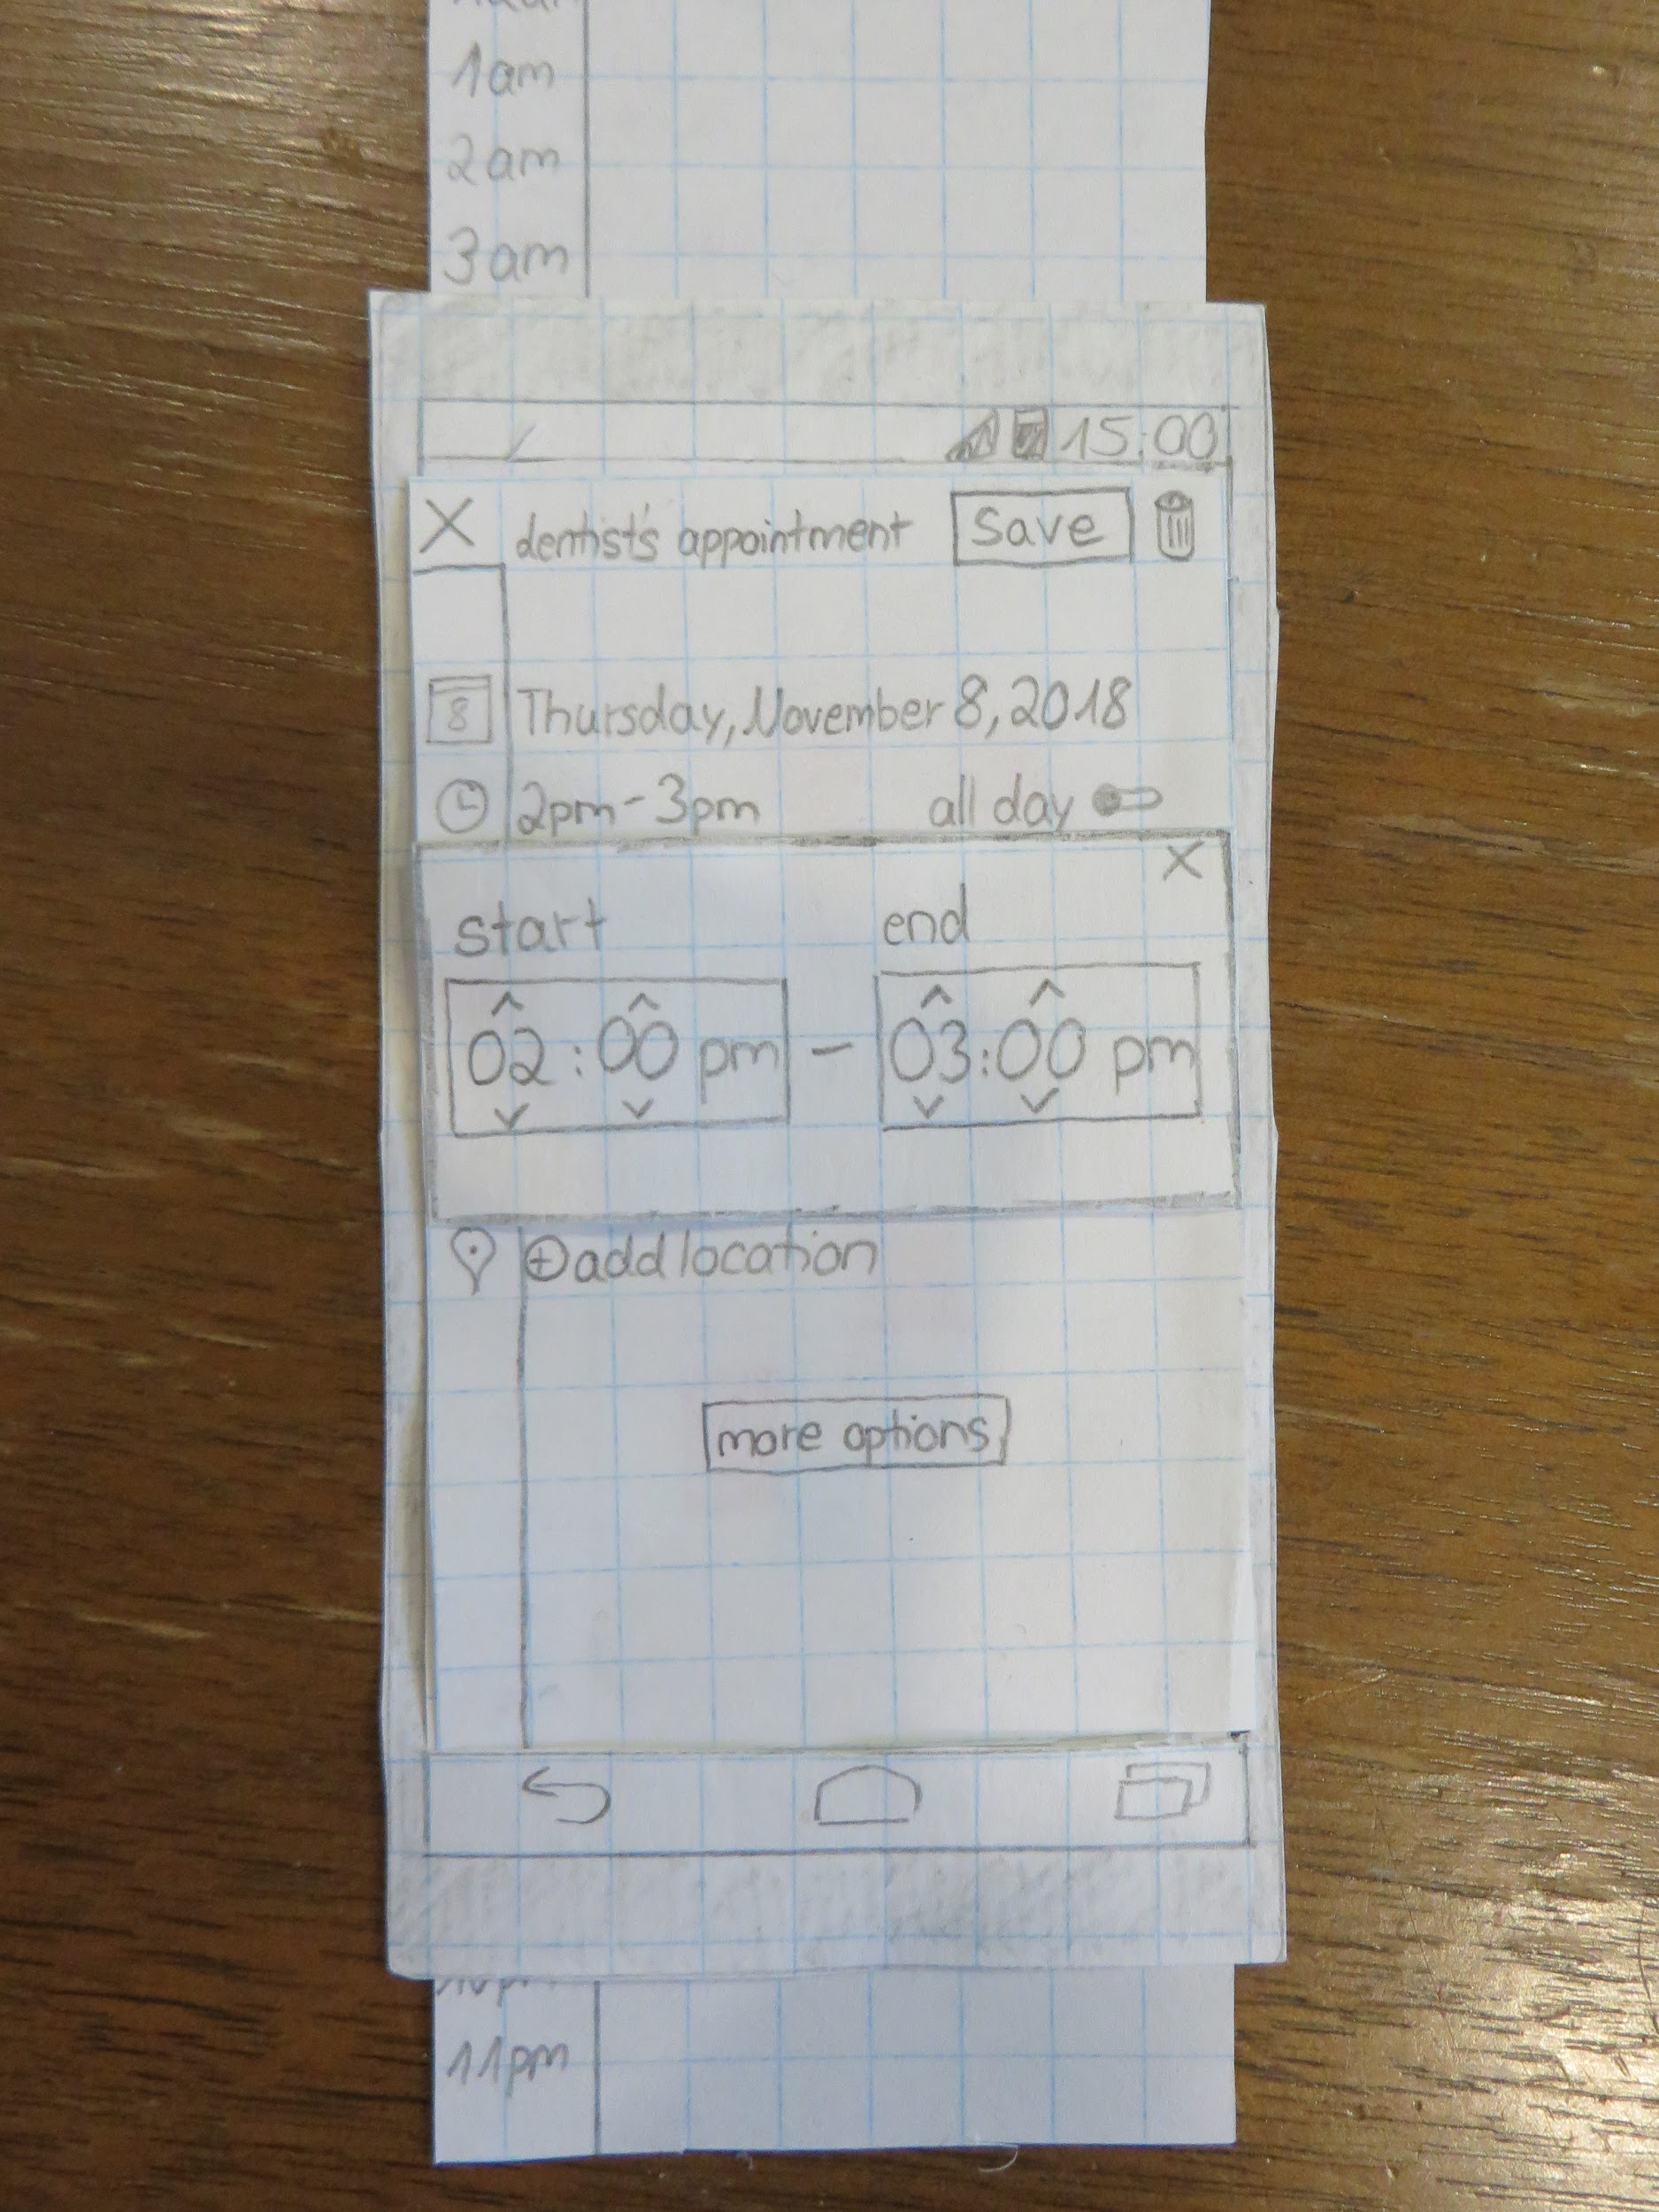 1am
2am
3am
15:00
X dentist's appointment save
8 Thursday, November 8, 2018
2pm - 3pm all day
X
start end
02:00 pm - 03:00 pm
add location
more options
11pm